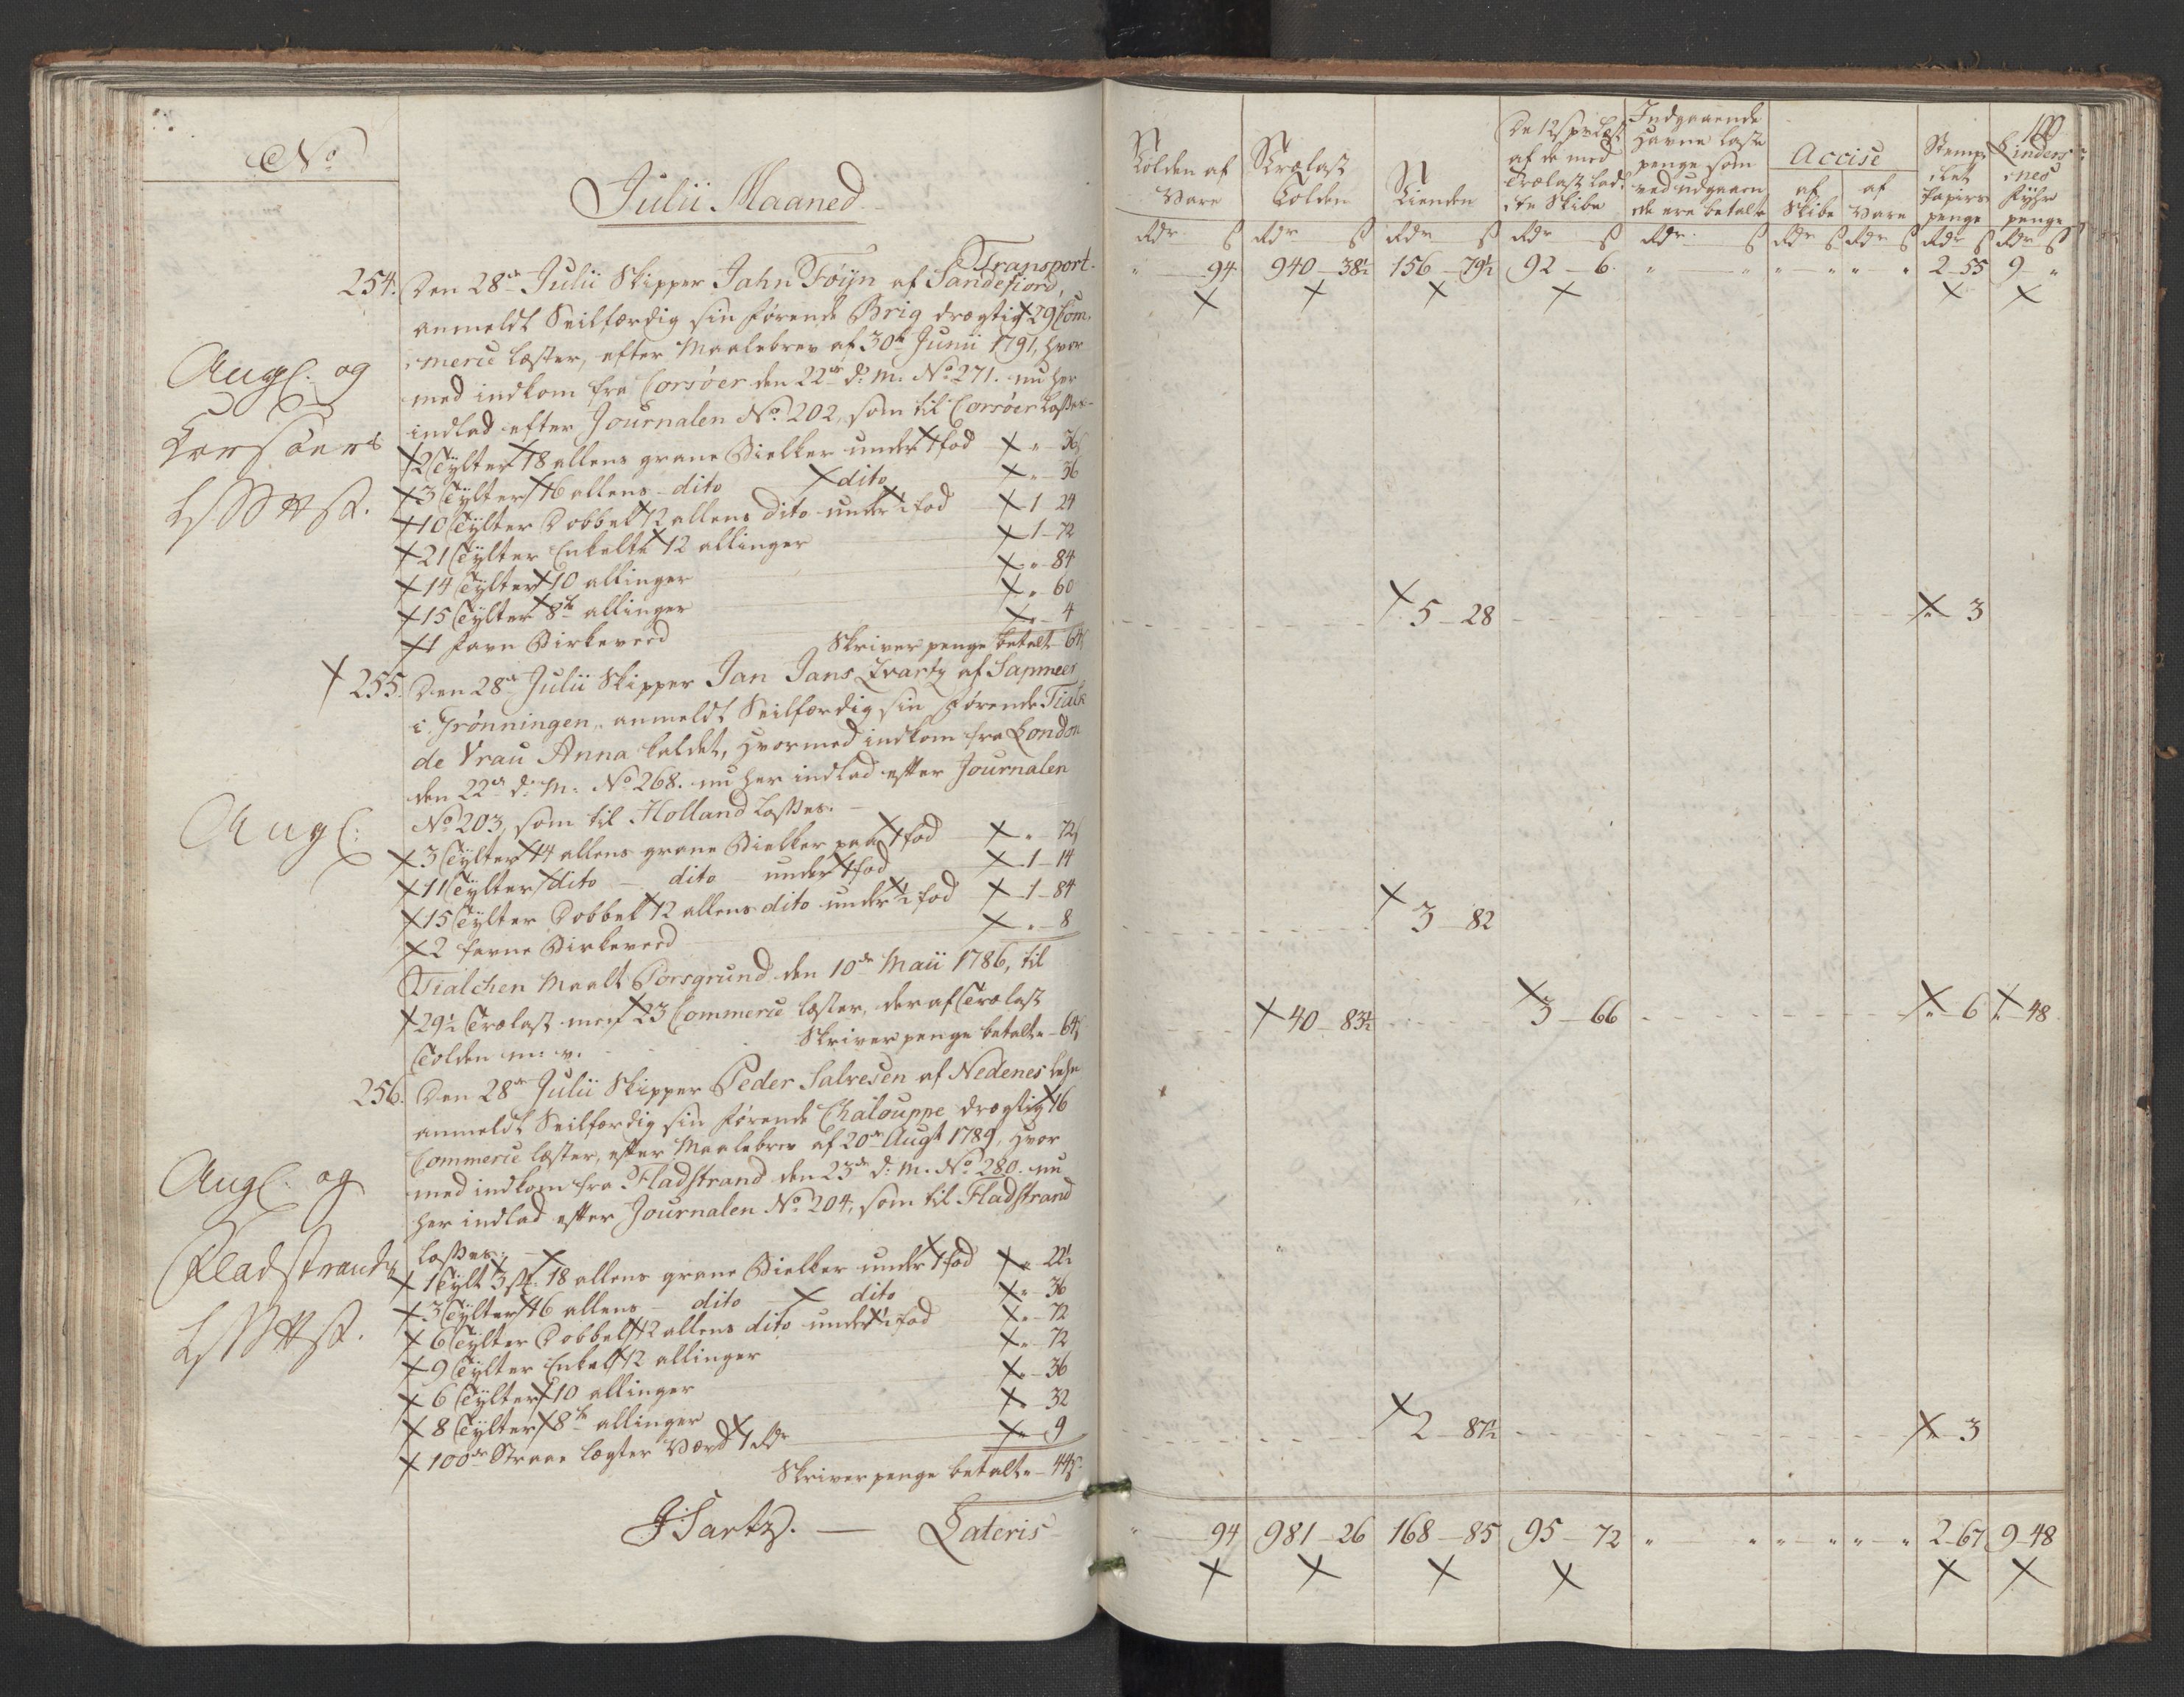 No
Julii Maaned
Transport.
254. Den 28de Julii Skipper Jahn Föÿn af Sandefiord,
anmeldt Seilfærdig sin førende Brig drægtig 29 Com¬
mercie læster, efter Maalebrev af 30te Junii 1791, hvor
med indkom fra Corsöer den 22de d: M: No 271. nu her
indlad efter Journalen No 202, som til Corsöer losses
Angl. og
Corsöers
2 Tÿlter 18 allens grane Bielker under 1 fod " 36 ß
3 Tÿlter 16 allens dito dito " 36
10 Tÿlter Dobbelt 12 allens dito under ½ fod 1 24
21 Tÿlter Enkelte 12 allinger 1-72
14 Tÿlter 10 allinger "-84
15 Tÿlter 8te allinger "-60
1 favn Birkeved "-4
Skriver penge betalt 64 ß
255. Den 28de Julii Skipper Jan Jans Zvarty af Sapmeer
i Grønningen, anmeldt Seilfærdig sin førende Tialk
de Vrau Anna kaldet, hvormed indkom fra London
den 22de d: M: No 268. nu her indlad efter Journalen
No 203, som til Holland losses.
Angl:
3 Tÿlter 14 allens grane Bielker paa 1 fod " 72 ß
11 Tÿlter dito dito under 1 fod 1-14
15 Tÿlter Dobbelt 12 allens dito under ½ fod 1-84
2 favne Birkeved "-8
Tialchen Maalt Porsgrund den 10de Maii 1786, til
29½ Trælast men 23 Commercie læster, deraf Trælast
Tolden m: v.
Skriver penge betalte 64 ß
256. Den 28de Julii Skipper Peder Salvesen af Nedenes Lehn
anmeldt Seilfærdig sin førende Chalouppe drægtig 16
Commercie læster, efter Maalebrev af 20de Augt 1789, hvor
med indkom fra Fladstrand den 23de d: M. No 280. nu
her indlad efter Journalen No 204, som til Fladstrand
losses.
Angl. og
Fladstrands
1 Tÿlt 3 st. 18 allens grane Bielker under 1 fod " 22½
3 Tÿlter 16 allens dito dito "-36
6 Tÿlter Dobbelt 12 allens dito under ½ fod "-72
9 Tÿlter Enkelt 12 allinger "-72
6 Tÿlter 10 allinger "-36
8 Tÿlter 8te allinger " 32
100de Straae Lægter værd 1 Rdr "-9
Skriver penge betalte 44 ß.
Lateris
100
Tolden af Vare
Trælast Tolden
Tienden
De 12 ß pr Læst af de med Trælast ladte Skibe
Indgaaende Havne Laste penge som ved udgaaende ere betalte
Accise
af Skibe
af Vare
Stemp¬let Papiirs penge
Lindersnes Fÿhr penge
Rdr ß Rdr ß Rdr ß Rdr ß Rdr ß Rdr ß Rdr ß Rdr ß Rdr ß
" 94 940-38½ 156-79½ 92-6 " " " " " " 2-55 9 "
5-28 " 3
3-82
40-83½ 3-66 " 6 "-48
2-87½ " 3
" 94 981-26 168-85 95-72 " " " " " " 2-67 9-48